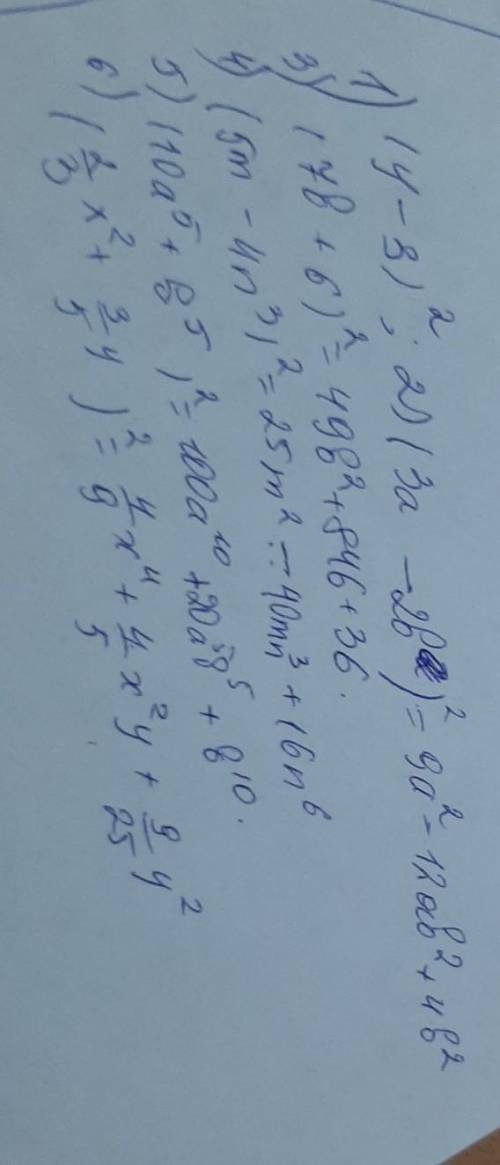 1) (y - 3)²; 2) (3a - 2b)² = 9a² - 12ab² + 4b²
3) (7b + 6)² = 49b² + 84b + 36.
4) (5m - 4n³)² = 25m² - 40mn³ + 16n⁶
5) (10a⁵ + b⁵)² = 100a¹⁰ + 20a⁵b⁵ + b¹⁰.
6) (2/3 x² + 3/5 y)² = 4/9 x⁴ + 4/5 x²y + 9/25 y²